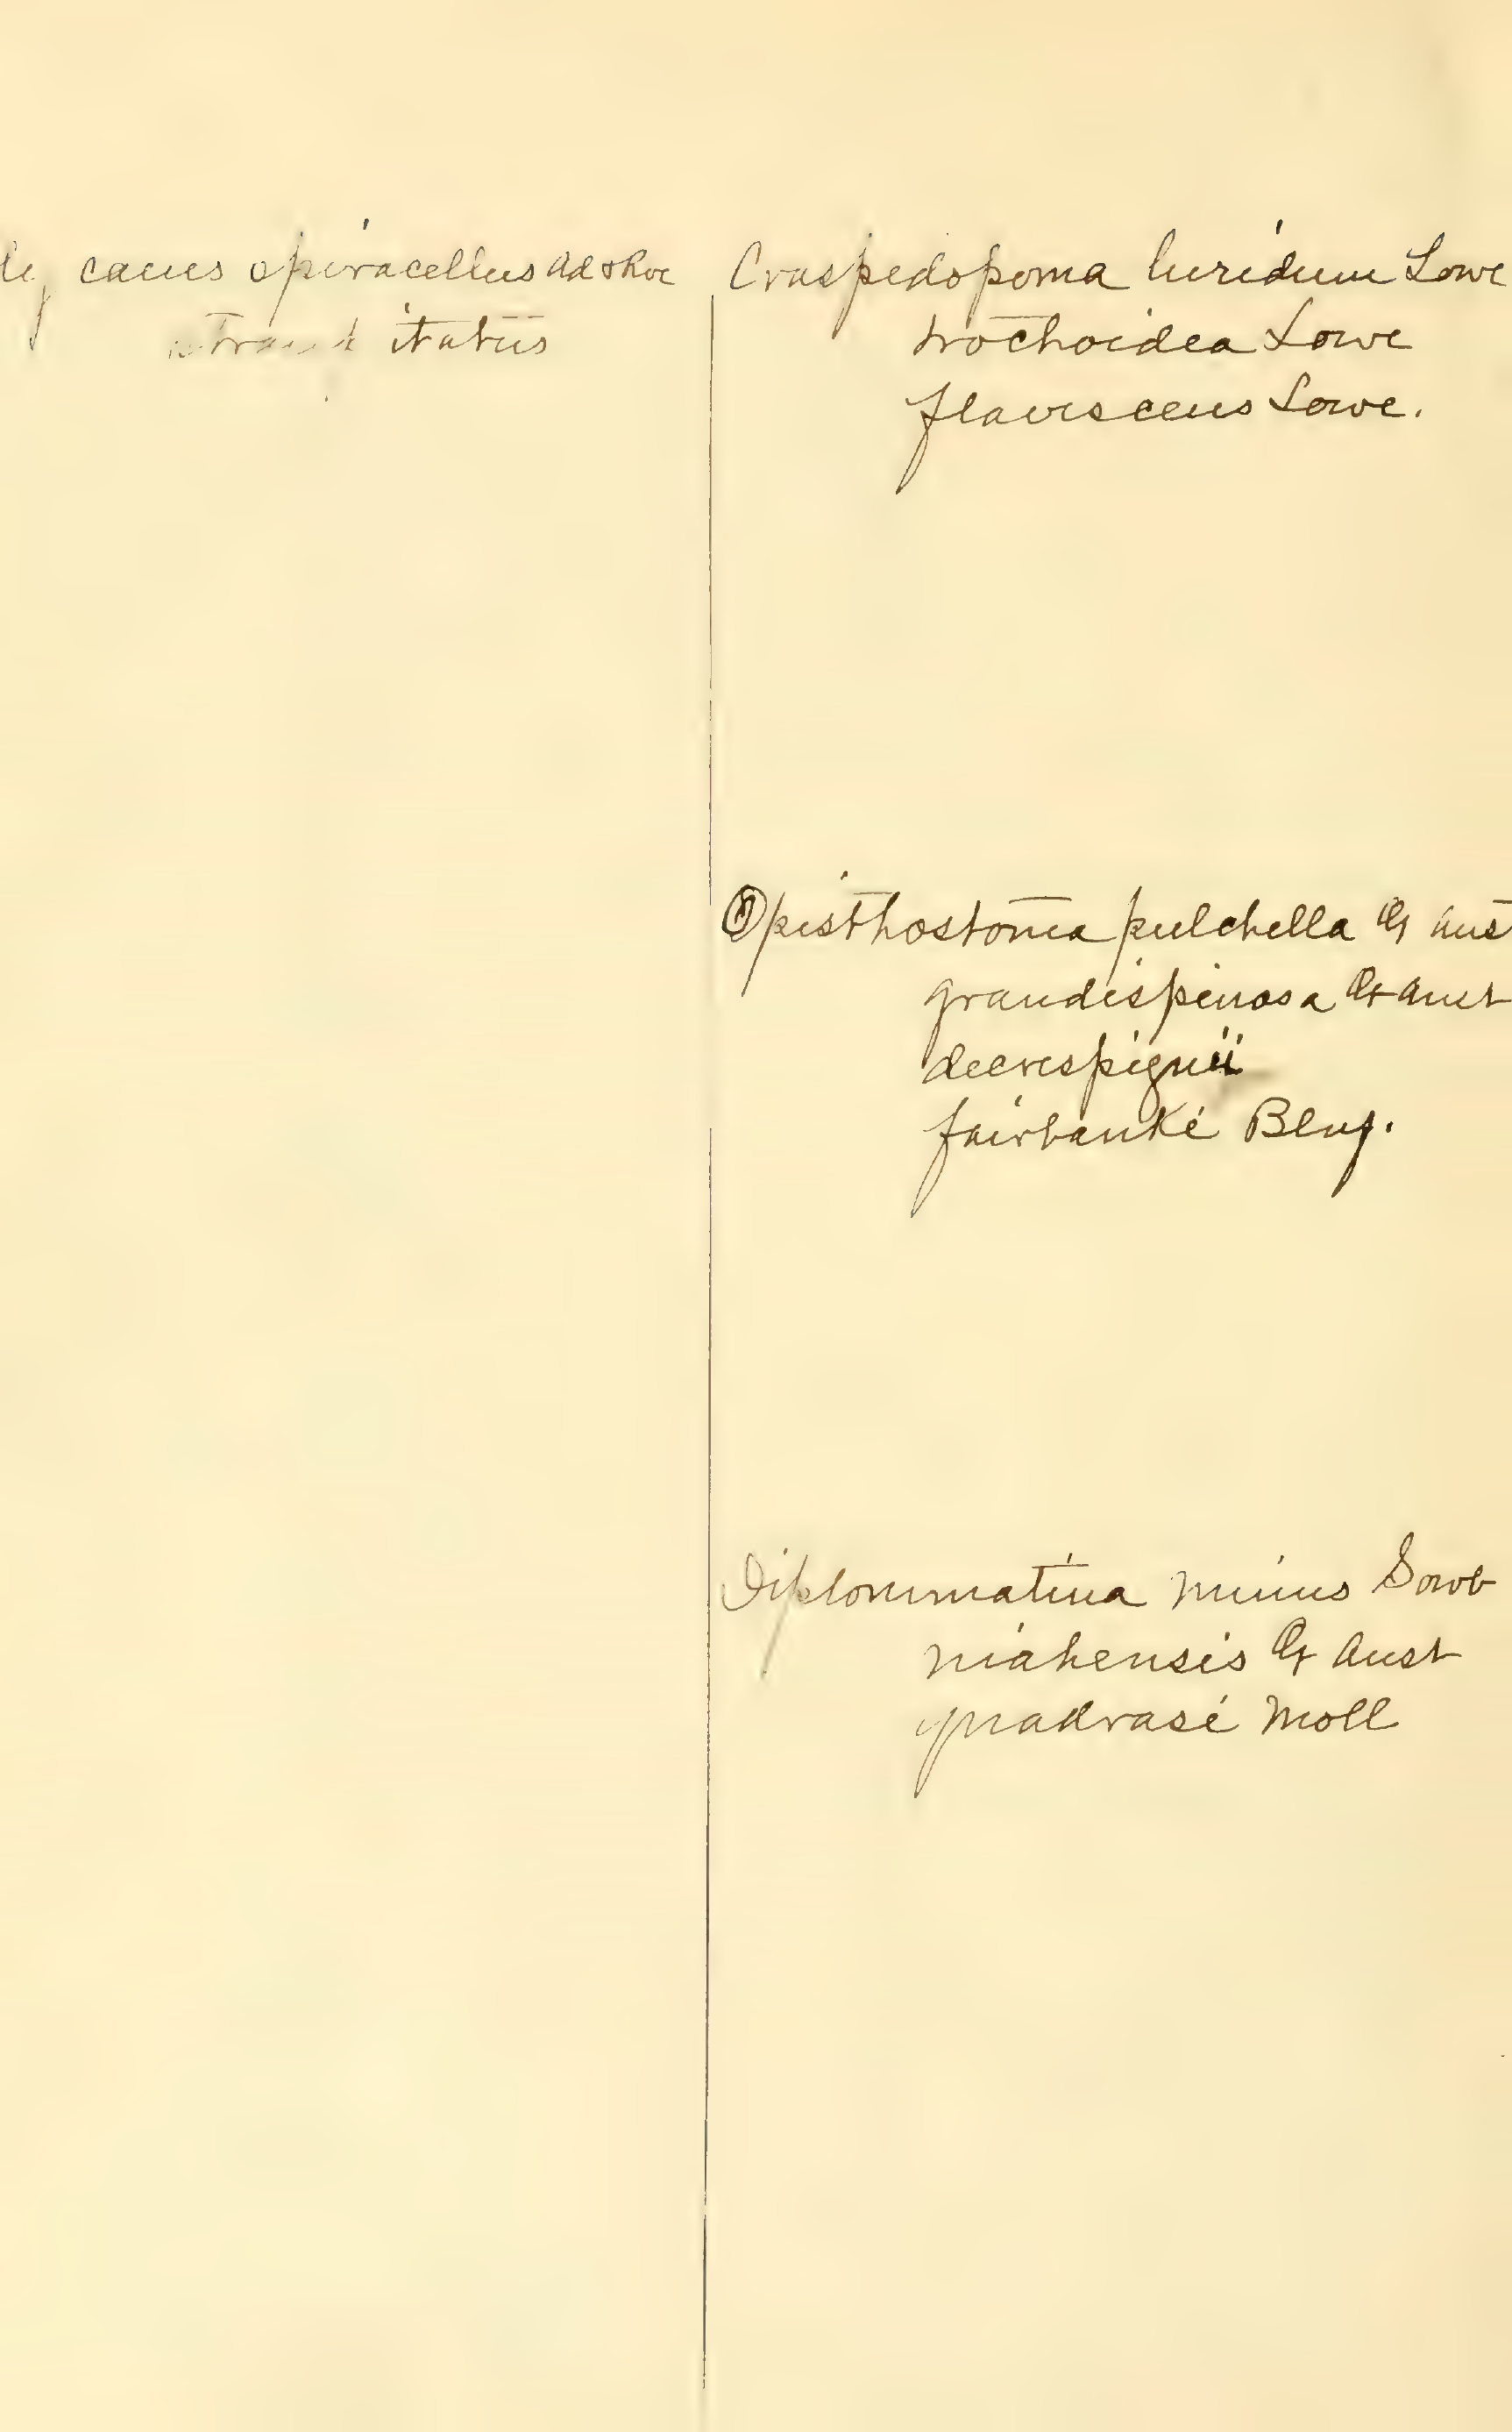 caeus spiracellus Ad & Rve
Craspedopoma luridum Lowe
trochoidea Lowe
flavescens Lowe.
Opisthostoma pulchella G Aust
grandispinosa G Aust
decrespignii
fairbanki Blnf.
Diplommatina minus Sowb
niahensis G Aust
quadrasi Moll